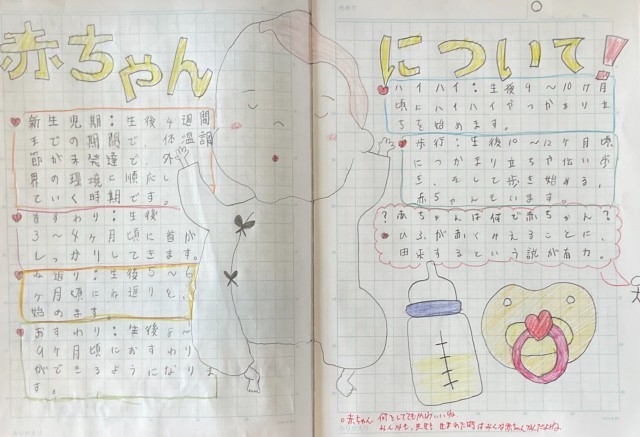 赤ちゃん
について!
新生児期：生後4週間
までの期間で、体温調
節が未発達で、外
界の環境に順応し
ていく時期です。
首すわり：生後
3〜4ヶ月頃に首が
しっかりしてきます。
ね返り：生後5〜6
ヶ月頃にね返りを、
始めます。
おすわり：生後8〜
9ヶ月頃におすわり
ができるようになりま
す。
ハイハイ：生後9〜10ヶ月
頃にハイハイやつかまり立
ちを始めます。
歩行：生後10〜12ヶ月頃、
につかまり立ちや伝い歩
き、をして歩き始める、
赤ちゃんもいます。
?赤ちゃんは何で赤ちゃん?
ひふがあかくみえることに、
由来するという説が有力。
赤ちゃん 何としてもかわいいね
みんなも、先生も 生まれた時はみんな赤ちゃんなんだよね